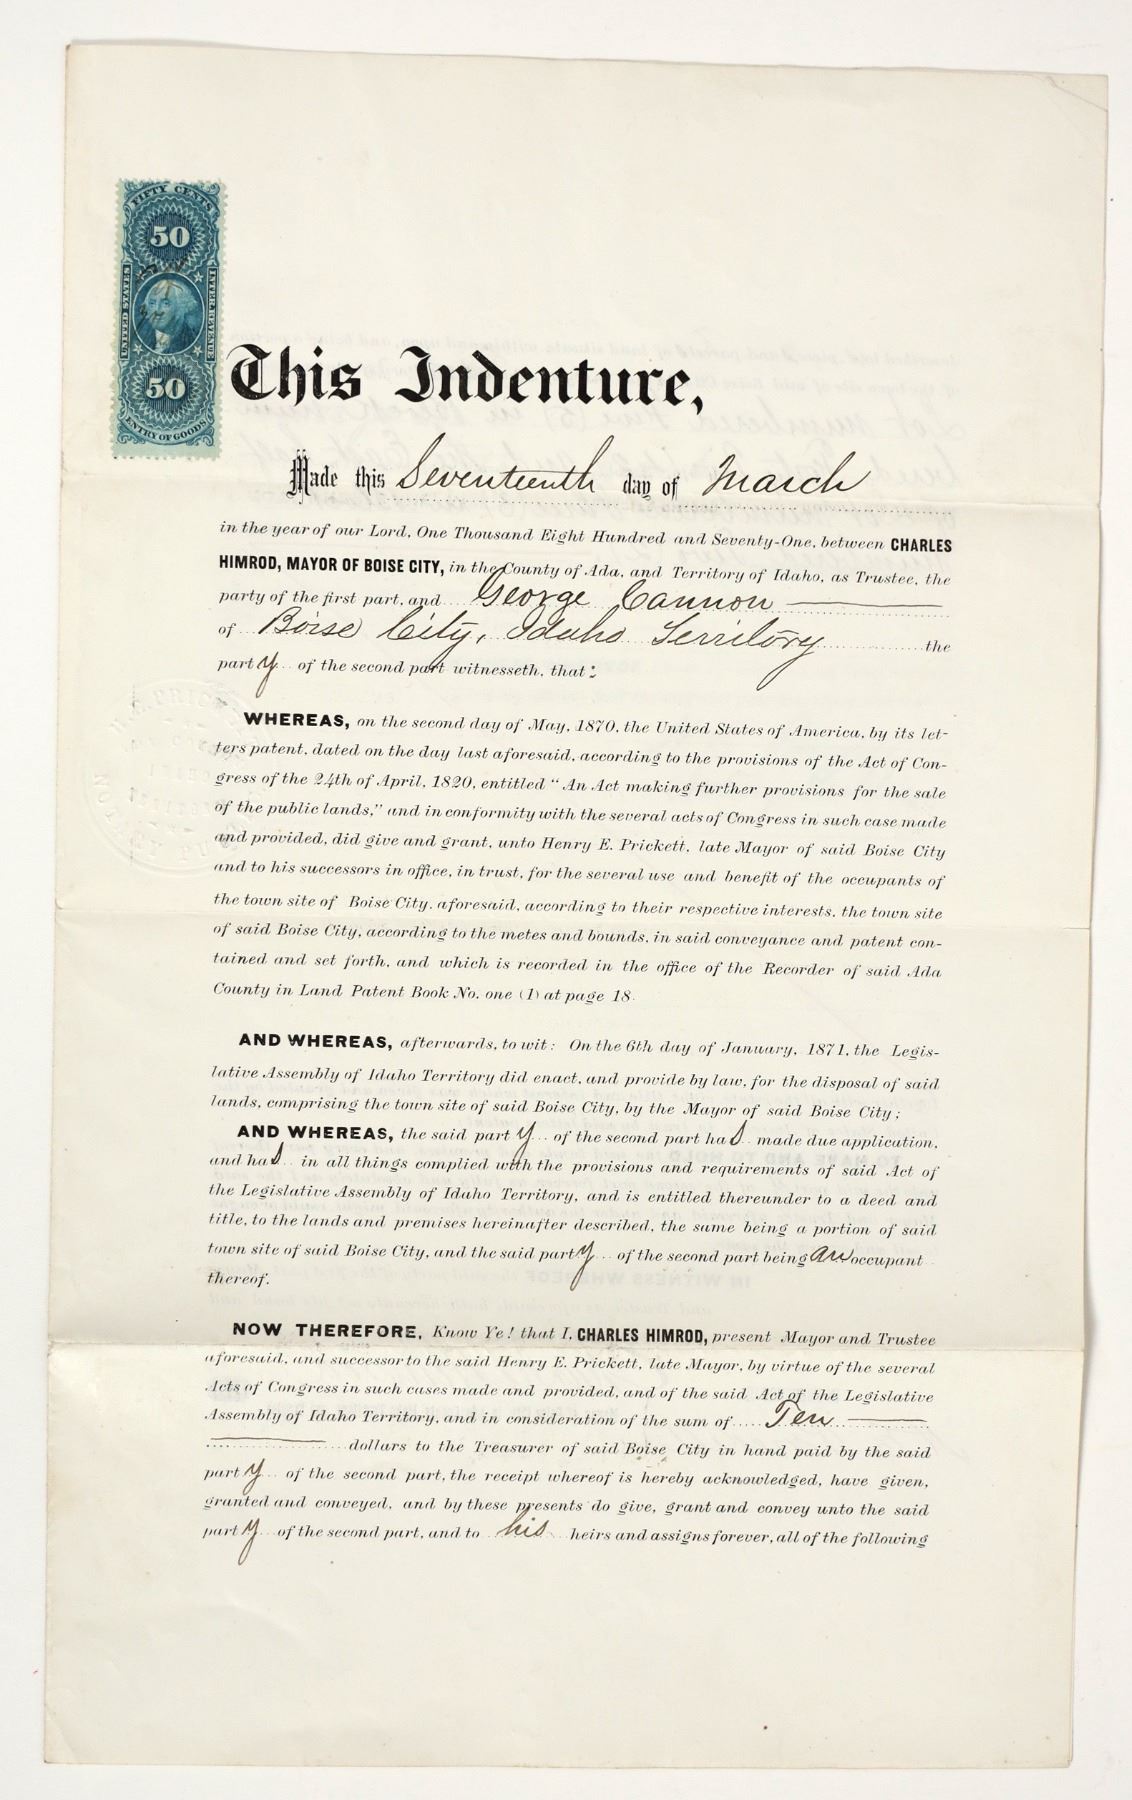 FIFTY CENTS
50
UNITED STATES
INTER. REVENUE
50
ENTRY OF GOODS
This Indenture,
Made this Seventeenth day of March
in the year of our Lord, One Thousand Eight Hundred and Seventy-One, between CHARLES
HIMROD, MAYOR OF BOISE CITY, in the County of Ada, and Territory of Idaho, as Trustee, the
party of the first part, and George Cannon
of Boise City, Idaho Territory the
party of the second part witnesseth, that:
WHEREAS, on the second day of May, 1870, the United States of America, by its let-
ters patent, dated on the day last aforesaid, according to the provisions of the Act of Con-
gress of the 24th of April, 1820, entitled "An Act making further provisions for the sale
of the public lands," and in conformity with the several acts of Congress in such case made
and provided, did give and grant, unto Henry E. Prickett, late Mayor of said Boise City
and to his successors in office, in trust, for the several use and benefit of the occupants of
the town site of Boise City, aforesaid, according to their respective interests, the town site
of said Boise City, according to the metes and bounds, in said conveyance and patent con-
tained and set forth, and which is recorded in the office of the Recorder of said Ada
County in Land Patent Book No. one (1) at page 18.
AND WHEREAS, afterwards, to wit: On the 6th day of January, 1871, the Legis-
lative Assembly of Idaho Territory did enact, and provide by law, for the disposal of said
lands, comprising the town site of said Boise City, by the Mayor of said Boise City;
AND WHEREAS, the said party of the second part has made due application,
and has in all things complied with the provisions and requirements of said Act of
the Legislative Assembly of Idaho Territory, and is entitled thereunder to a deed and
title, to the lands and premises hereinafter described, the same being a portion of said
town site of said Boise City, and the said party of the second part being an occupant
thereof.
NOW THEREFORE, Know Ye! that I, CHARLES HIMROD, present Mayor and Trustee
aforesaid, and successor to the said Henry E. Prickett, late Mayor, by virtue of the several
Acts of Congress in such cases made and provided, and of the said Act of the Legislative
Assembly of Idaho Territory, and in consideration of the sum of Ten
dollars to the Treasurer of said Boise City in hand paid by the said
party of the second part, the receipt whereof is hereby acknowledged, have given,
granted and conveyed, and by these presents do give, grant and convey unto the said
party of the second part, and to his heirs and assigns forever, all of the following